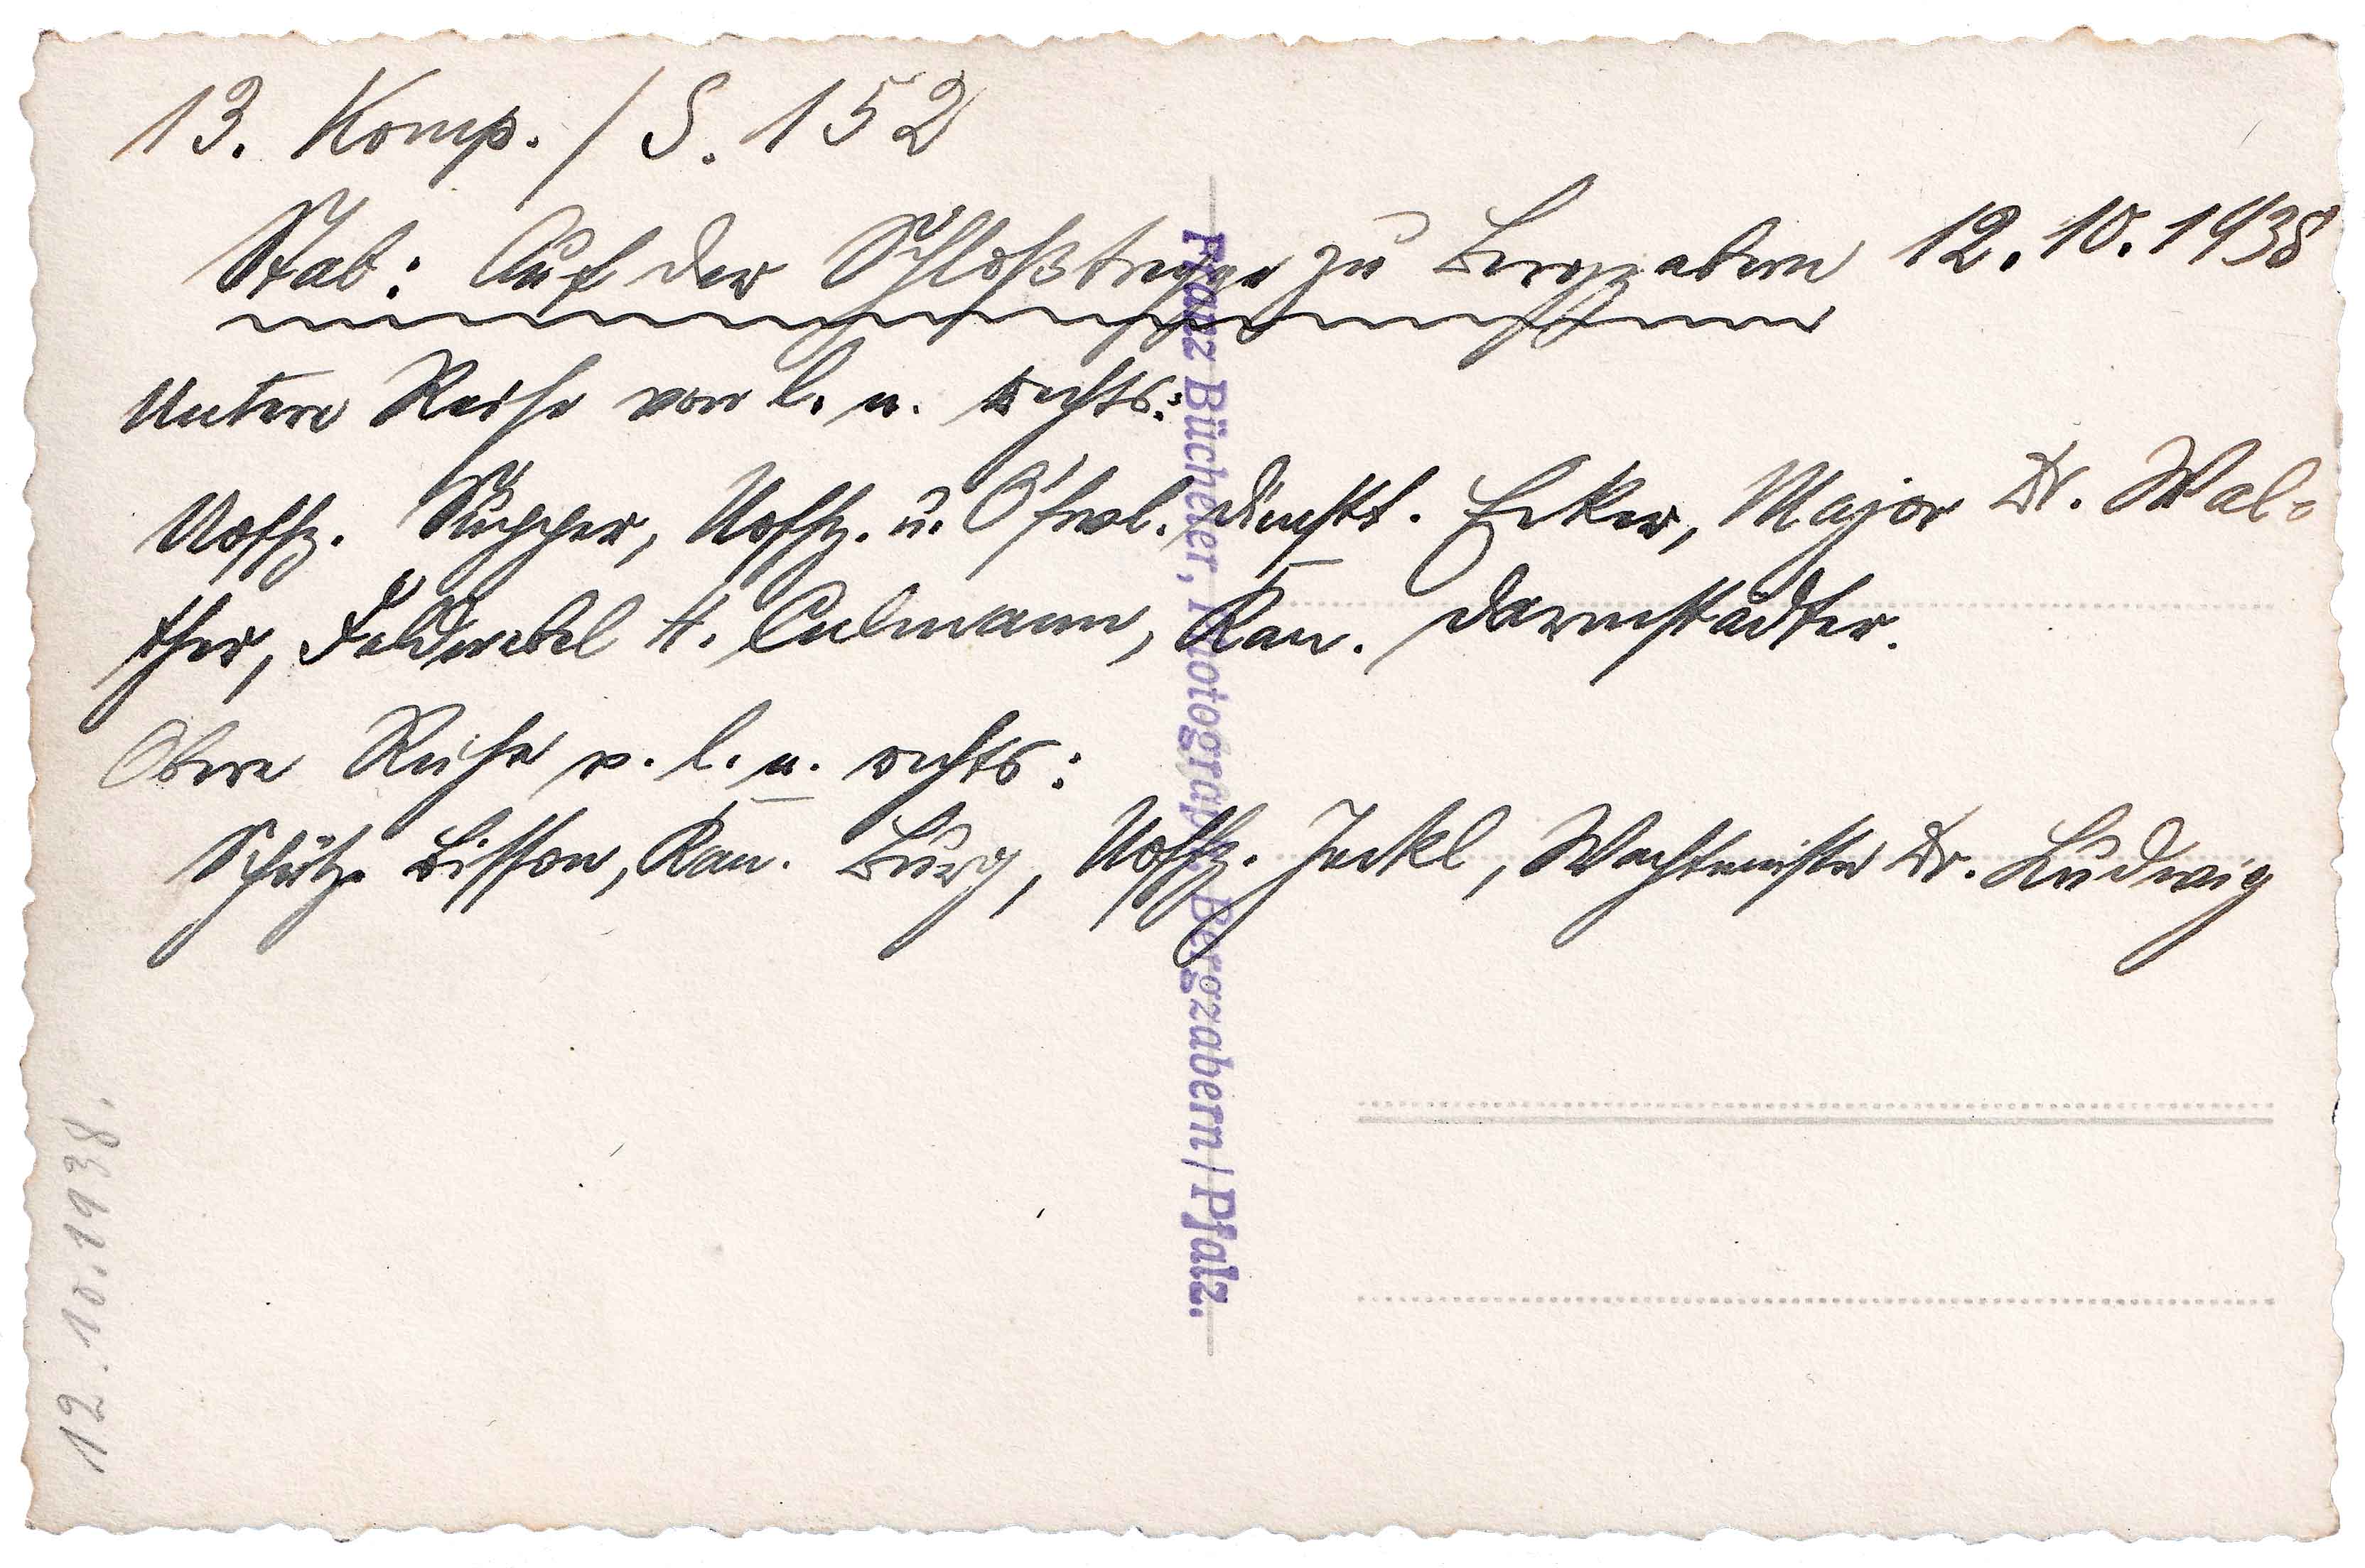 13. Komp. / S. 152
Stab: Auf der Schloßtreppe zu Bergzabern 12.10.1938
Untere Reihe von l. n. rechts:
Uoffz. Kupper, Uoffz. u. O'fwl. dienstt. Ecker, Major Dr. Wal-
ther, Feldwebel H. Culmann, Kan. Darmstädter.
Obere Reihe v. l. n. rechts:
Schütze Bisson, Kan. Burg, Uoffz. Jeckl, Wachtmeister Dr. Ludwig
Franz Bücheler, Photograph, Bergzabern / Pfalz.
12.10.1938.